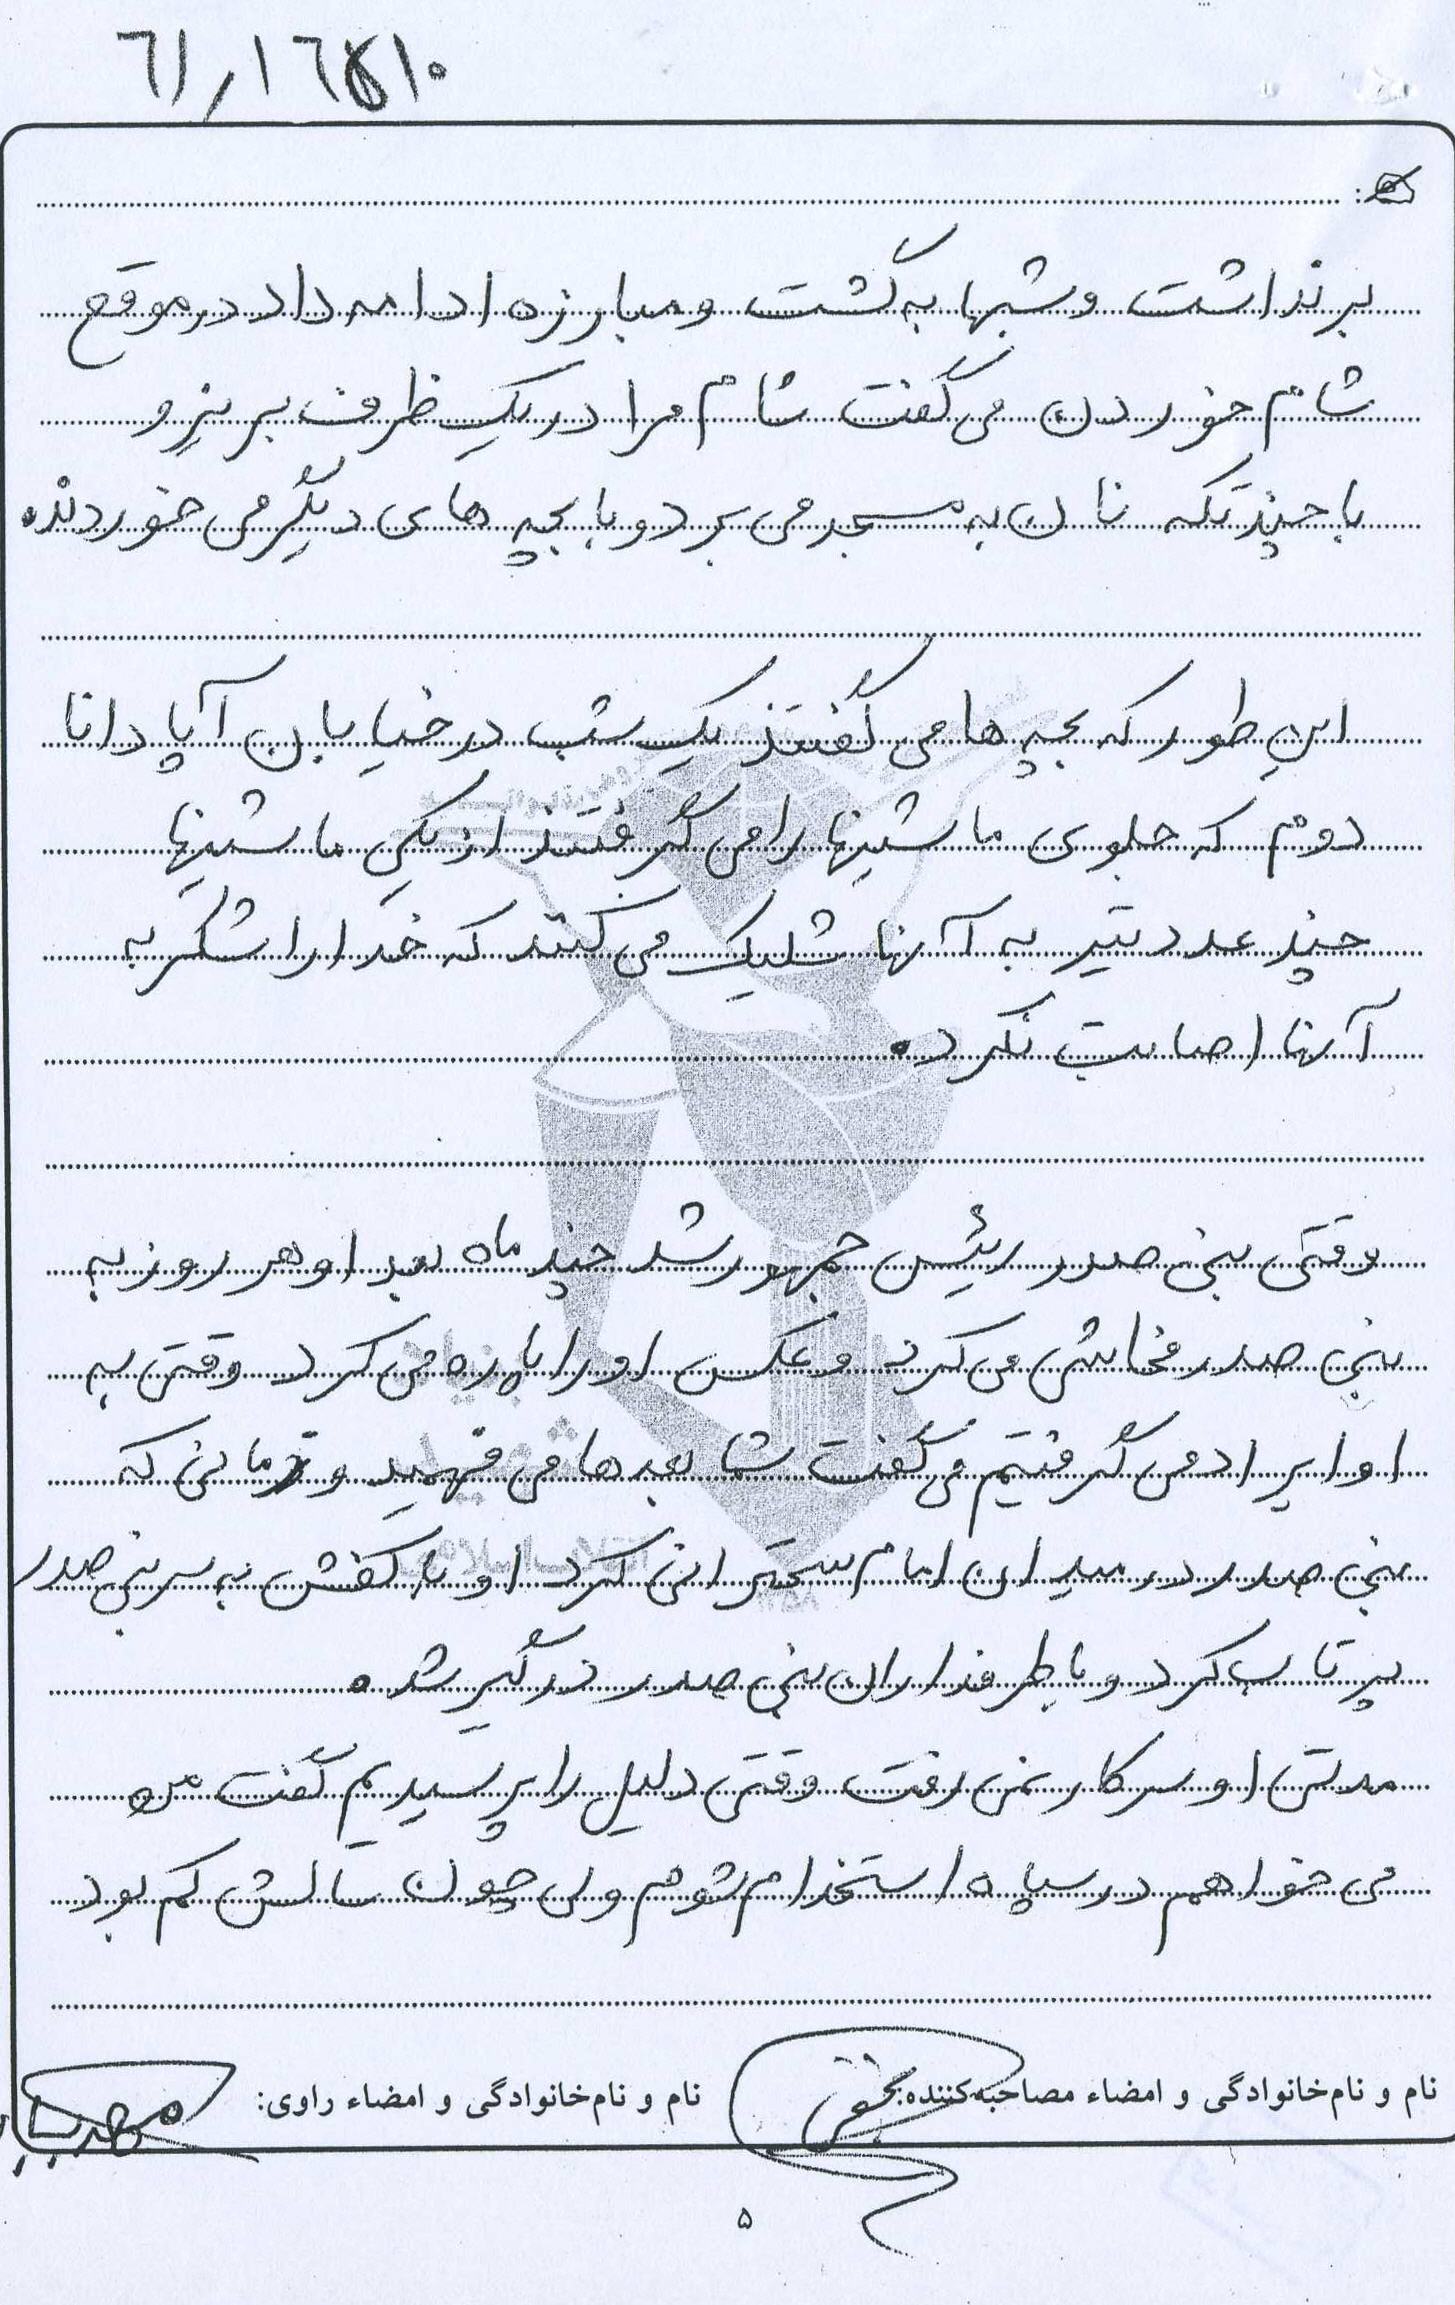 برنداشت و شبها به گشت و مبارزه ادامه داد در موقع
شام خوردن می گفت شام مرا در یک ظرف بریز و
با چند تکه نان به مسجد می برد و با بچه های دیگر می خوردند.
این طور که بچه ها می گفتند یک شب در خیابان آپادانا
دوم که جلوی ماشینها را می گرفتند از یکی ماشینها
چند عدد تیر به آنها شلیک می کنند که خدا را شکر به
آنها اصابت نکرد.
وقتی بنی صدر رئیس جمهور شد چند ماه بعد او هر روز به
بنی صدر فحاشی می کرد و عکس او را پاره می کرد وقتی به
او ایراد می گرفتیم می گفت شما بعدها می فهمید و زمانی که
بنی صدر در میدان امام سخنرانی کرد او با کفش به سر بنی صدر
پرتاب کرد و با طرفداران بنی صدر درگیر شد.
مدتی او سر کار نمی رفت وقتی دلیل را پرسیدیم گفت من
می خواهم در سپاه استخدام شوم ولی چون سالش کم بود
نام و نام‌خانوادگی و امضاء مصاحبه‌کننده: نام و نام‌خانوادگی و امضاء راوی:
۵